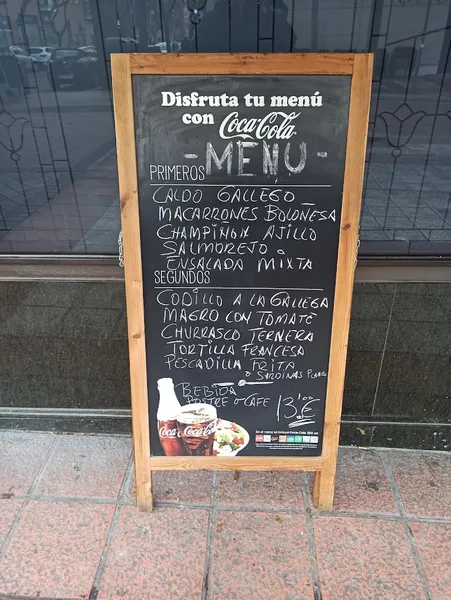 Disfruta tu menú
con Coca-Cola
- MENU -
PRIMEROS
CALDO GALLEGO
MACARRONES BOLONESA
CHAMPIÑON AJILLO
SALMOREJO
ENSALADA MIXTA
SEGUNDOS
CODILLO A LA GALLEGA
MAGRO CON TOMATE
CHURRASCO TERNERA
TORTILLA FRANCESA
PESCADILLA FRITA
o SARDINAS PLANCHA
BEBIDA
POSTRE o CAFE 13'00€
Coca-Cola Coca-Cola